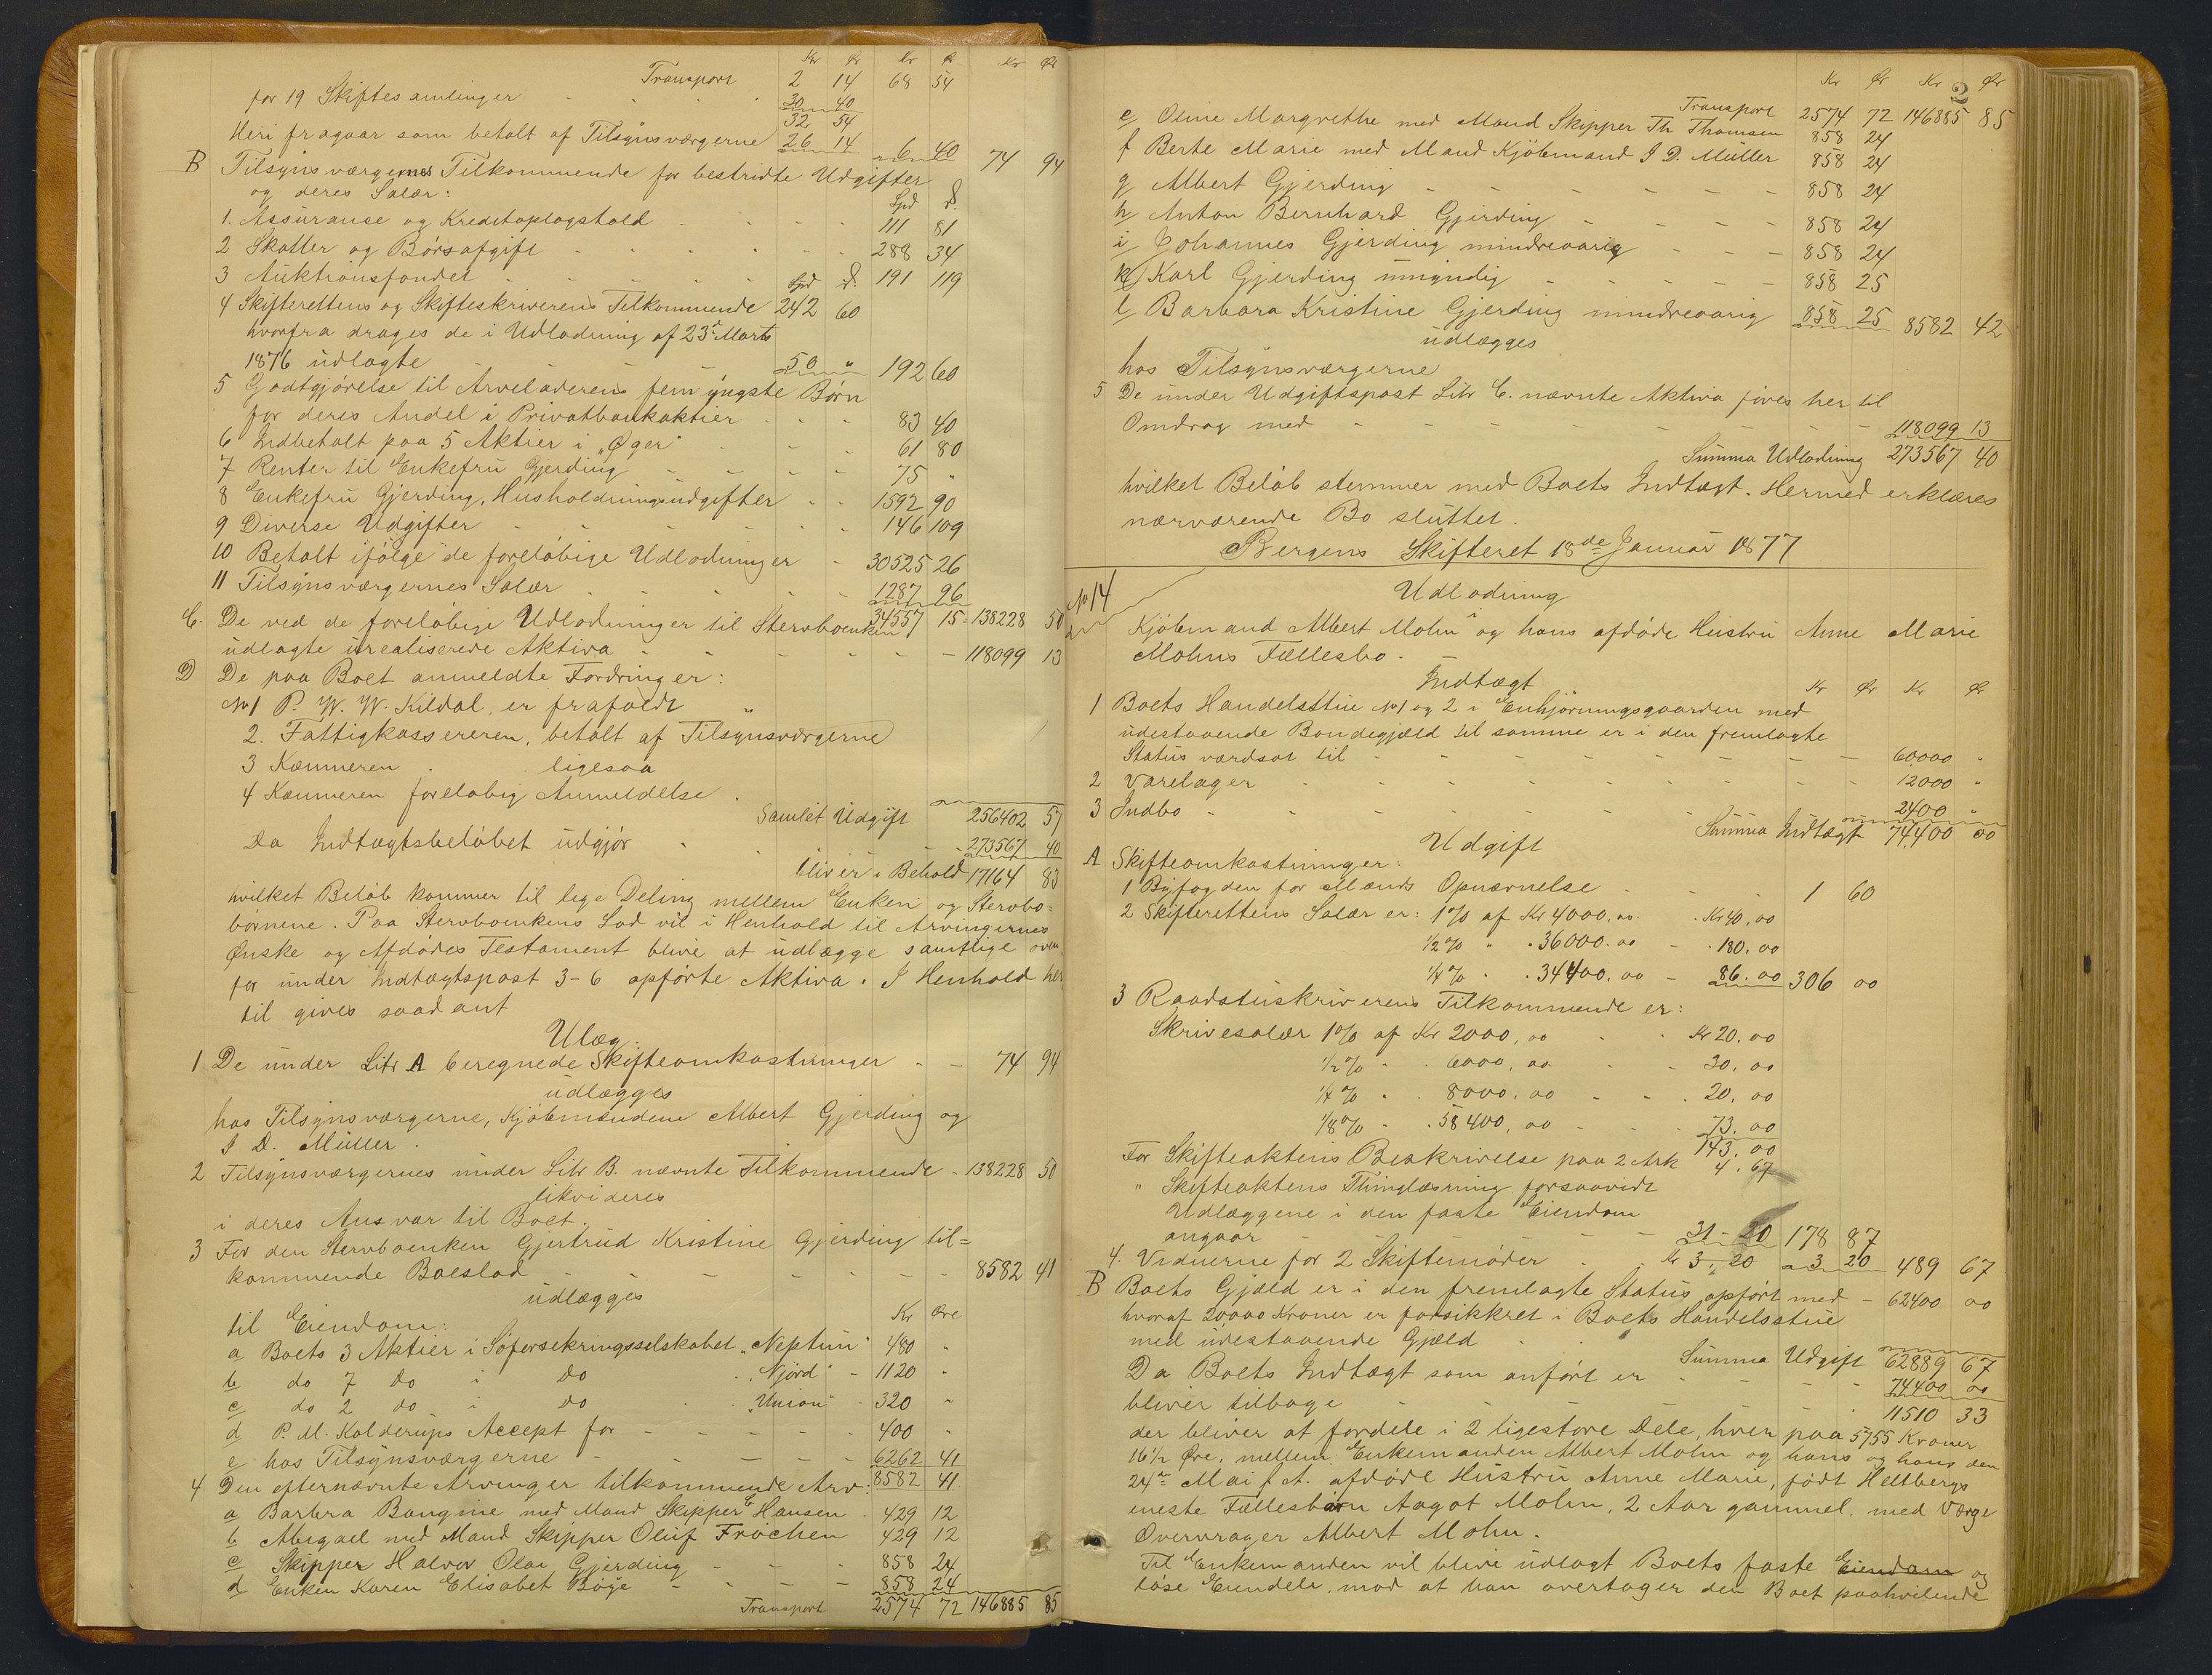 Kr Ør Kr Ø Kr Ør
Transport 2 14 68 54
for 19 Skiftesamlinger 30 40
32 54
Heri fragaar som betalt af Tilsynsværgerne 26 14 6 40 74 94
B Tilsynsværgernes Tilkommende for bestridte Udgifter
og deres Salær: Spd ß.
1. Assurance og Kreditoplagshold 111 81
2 Skatter og Börsafgift 288 34
3 Auktionsfondet Spd ß. 191 119
4 Skifterettens og Skifteskriverens Tilkommende 242 60
hvorfra drages de i Udlodning af 23d Marts
1876 udlagte 50 " 192 60
5 Godtgjörelse til Arveladerens fem yngste Börn
for deres Andel i Privatbankaktier 83 40
6 Indbetalt paa 5 Aktier i „Øger" 61 80
7 Renter til Enkefru Gjerding 75 "
8 Enkefru Gjerding, Husholdningsudgifter 1592 90
9 Diverse Udgifter 146 109
10 Betalt ifölge de forelöbige Udlodninger 30525 26
11 Tilsynsværgernes Salær 1287 96
34557 15 = 138228 50
C. De ved de forelöbige Udlodninger til Stervboenken
udlagte urealiserede Aktiva 118099 13
D De paa Boet anmeldte Fordringer:
No 1 P. W. W. Kildal, er frafaldt "
2. Fattigkassereren, betalt af Tilsynsværgerne
3 Kæmneren ligesaa
4 Kæmneren forelöbig Anmeldelse
Samlet Udgift 256402 57
Da Indtægtsbelöbet udgjör 273567 40
bliver i Behold 17164 83
hvilket Belöb kommer til lige Deling mellem Enken og Stervbo=
börnene. Paa Stervboenkens Lod vil i Henhold til Arvingernes
Ønske og Afdödes Testament blive at udlægge samtlige oven
for under Indtægtspost 3-6 opförte Aktiva. I Henhold her
til gives saadant
Ulæg.
1 De under Litr A beregnede Skifteomkostninger 74 94
udlægges
hos Tilsynsværgerne, Kjöbmændene Albert Gjerding og
J D. Müller.
2 Tilsynsværgernes under Litr B. nævnte Tilkommende 138228 50
likvideres
i deres Ansvar til Boet.
3 For den Stervboenken Gjertrud Kristine Gjerding til=
kommende Boeslod 8582 41
udlægges
til Eiendom: Kr Øre
a Boets 3 Aktier i Söforsekringsselskabet „Neptun" 480 "
b do 7 Do i Do „Njörd" 1120 "
c do 2 do i Do „Union" 320 "
d P. M. Kolderups Accept for 400 "
e hos Tilsynsværgerne 6262 41
8582 41
4 Den efternævnte Arvinger tilkommende Arv:
a Barbra Bangine med Mand Skipper C Hansen 429 12
b Abigael med Mand Skipper Oluf Fröchen 429 12
c Skipper Halvor Olai Gjerding 858 24
d Enken Karen Elisabet Böÿe 858 24
Transport 2574 72 146885 85
2
Kr Ør Kr Ør
Transport 2574 72 146885 85
e Oline Margrethe med Mand Skipper Th Thomsen 858 24
f Berte Marie med Mand Kjöbmand J D. Müller 858 24
g Albert Gjerding 858 24
h Anton Bernhard Gjerding 858 24
i Johannes Gjerding mindreaarig 858 24
k Karl Gjerding umyndig 858 25
l Barbara Kristine Gjerding mindreaarig 858 25 8582 42
udlægges
hos Tilsynsværgerne
5 De under Udgiftspost Litr C. nævnte Aktiva föres her til
Omdrag med 118099 13
Summa Udlodning 273567 40
hvilket Belöb stemmer med Boets Indtægt. Hermed erklæres
nærværende Bo sluttet.
Bergens Skifteret 18de Januar 1877
No 14
Udlodning
i
Kjöbmand Albert Mohn og hans afdöde Hustru Anne Marie
Mohns Fællesbo.
Indtægt Kr Ør Kr Ør
1 Boets Handelsstue No 1 og 2 i Enhjörningsgaarden med
udestaaende Bondegjæld til samme er i den fremlagte
Status værdsat til 60000 "
2 Varelager 12000 "
3 Indbo 2400 "
Summa Indtægt 74400 00
Udgift
A Skifteomkostninger:
1 Byfogden for Mænds Opnævnelse 1 60
2 Skifterettens Salær er: 1% af Kr 4000.00 Kr 40,00
1/2% " 36000.00 180.00
1/4% 34400.00 86.00 306 00
3 Raadstuskriverens Tilkommende er:
Skrivesalær 1% af Kr 2000,00 Kr 20.00
1/2% 6000,00 30,00
1/4% 8000.00 20,00
1/8% 58400,00 73.00
143.00
For Skifteaktens Beskrivelse paa 2 Ark 4.67
" Skifteaktens Thinglæsning forsaavidt
Udlæggene i den faste Eiendom
angaar 31-20 178 87
4. Vidnerne for 2 Skiftemöder Kr 3,20 3 20 489 67
B Boets Gjæld er i den fremlagte Status opfört med 62400 00
hvoraf 20000 Kroner er forsikkret i Boets Handelsstue
med udestaaende Gjæld
Summa Udgift 62889 67
Da Boets Indtægt som anfört er 74400 00
bliver tilbage 11510 33
der bliver at fordele i 2 ligestore Dele, hver paa 5755 Kroner
16 1/2 Øre, mellem Enkemanden Albert Mohn og hans og hans den
24de Mai f. A. afdöde Hustru Anne Marie, födt Heltbergs
eneste Fællesbarn Aagot Mohn, 2 Aar gammel, med Værge
Overvrager Albert Mohn.
Til Enkemanden vil blive udlagt Boets faste Eiendom og
löse Eiendele, mod at han overtager den Boet paahvilende